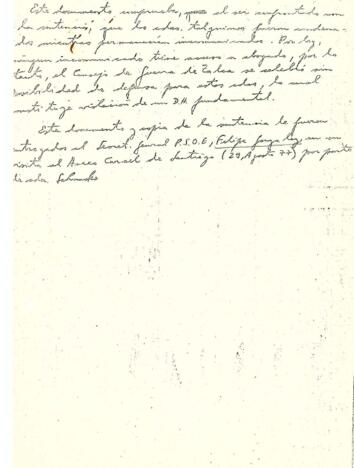 Este documento comprueba, pues al ser confrontado con
la sentencia, que los sdos. talquinos fueron condena-
dos mientras permanecían incomunicados. Por ley,
ningun incomunicado tiene acceso a abogado, por lo
tanto, el Consejo de Guerra de Talca se celebró sin
posibilidad de defensa para estos sdos, lo cual
constituye violación de un D.H. fundamental.
Este documento y copia de la sentencia le fueron
entregados al Secret. General P.S.O.E, Felipe Gonzalez en su
visita al Anexo Carcel de Santiago (29, Agosto 77) por parte
de